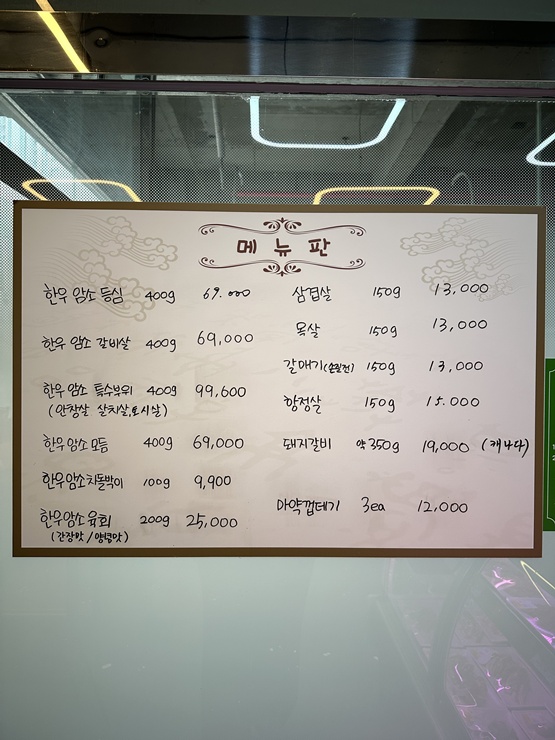 메뉴판
한우 암소 등심 400g 69.000
한우 암소 갈비살 400g 69,000
한우 암소 특수부위 400g 99,600
(안창살 살치살,토시살)
한우암소모듬 400g 69,000
한우암소차돌박이 100g 9,900
한우암소육회 200g 25,000
(간장맛/양념맛)
삼겹살 150g 13,000
목살 150g 13,000
갈매기 150g 13,000
항정살 150g 15.000
돼지갈비 약350g 19,000 (캐나다)
마약껍데기 3ea 12,000